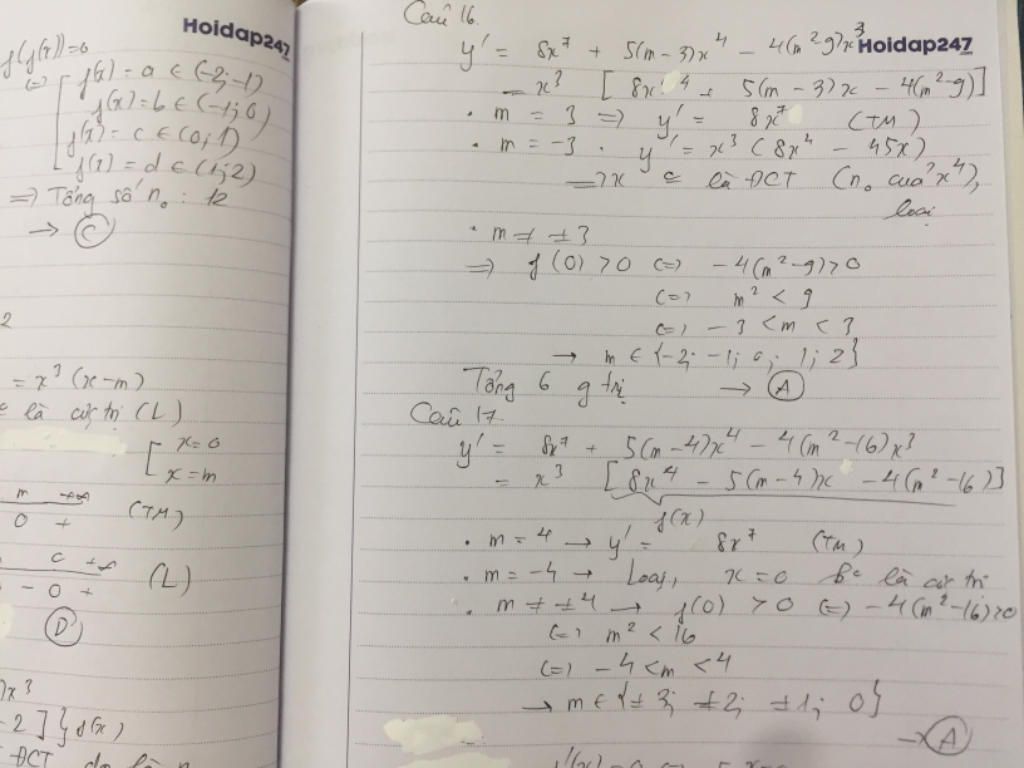 Hoidap247
f(f(x))=0
(=) [ f(x) = a ∈ (-2; -1)
f(x) = b ∈ (-1; 0)
f(x) = c ∈ (0; 1)
f(x) = d ∈ (1; 2)
=> Tổng số no : 12
→ C
2
= x³ (x-m)
là cực trị (L)
[ x = 0
x = m
m +∞
0 + (TM)
0 +∞
- 0 + (L)
D
)x³
- 2 ] } f(x)
ĐCT do là n
Câu 16.
Hoidap247
y' = 8x⁷ + 5(m-3)x⁴ - 4(m²-9)x³
= x³ [ 8x⁴ + 5(m-3)x - 4(m²-9)]
• m = 3 => y' = 8x⁷ (TM)
• m = -3 . y' = x³ (8x⁴ - 45x)
=> x = là ĐCT (no của x⁴),
loại
• m ≠ ±3
=> f(0) > 0 (=) -4(m²-9)>0
(=) m² < 9
(=) -3 < m < 3
→ m ∈ {-2; -1; 0; 1; 2}
Tổng 6 g trị → A
Câu 17.
y' = 8x⁷ + 5(m-4)x⁴ - 4(m²-16)x³
= x³ [8x⁴ - 5(m-4)x - 4(m²-16)]
f(x)
• m = 4 → y' = 8x⁷ (TM)
• m = -4 → Loại, x = 0 là cực trị
• m ≠ ±4 → f(0) > 0 (=) -4(m²-16)>0
(=) m² < 16
(=) -4 < m < 4
→ m ∈ {±3; ±2; ±1; 0}
→ A